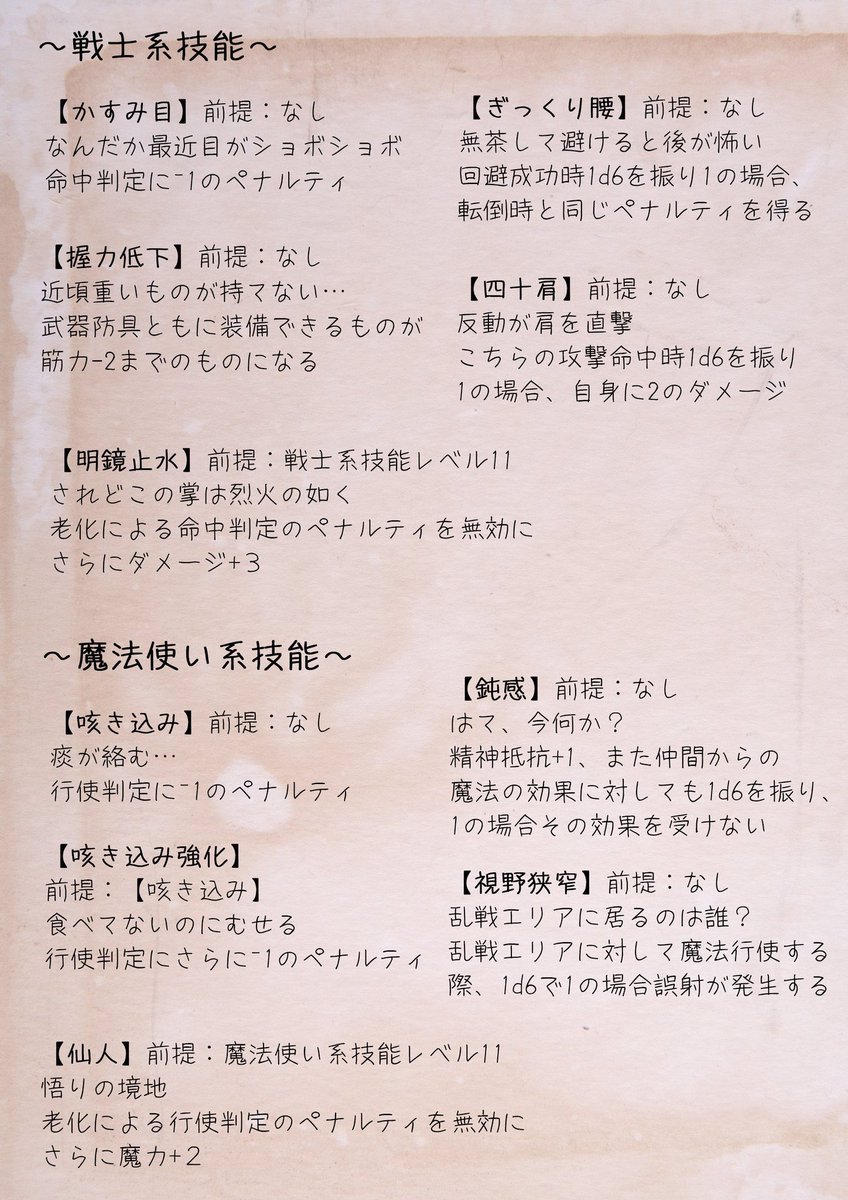 ～戦士系技能～
【かすみ目】前提：なし
なんだか最近目がショボショボ
命中判定に-1のペナルティ
【ぎっくり腰】前提：なし
無茶して避けると後が怖い
回避成功時1d6を振り1の場合、
転倒時と同じペナルティを得る
【握力低下】前提：なし
近頃重いものが持てない…
武器防具ともに装備できるものが
筋力-2までのものになる
【四十肩】前提：なし
反動が肩を直撃
こちらの攻撃命中時1d6を振り
1の場合、自身に2のダメージ
【明鏡止水】前提：戦士系技能レベル11
されどこの掌は烈火の如く
老化による命中判定のペナルティを無効に
さらにダメージ+3
～魔法使い系技能～
【咳き込み】前提：なし
痰が絡む…
行使判定に-1のペナルティ
【鈍感】前提：なし
はて、今何か？
精神抵抗+1、また仲間からの
魔法の効果に対しても1d6を振り、
1の場合その効果を受けない
【咳き込み強化】
前提：【咳き込み】
食べてないのにむせる
行使判定にさらに-1のペナルティ
【視野狭窄】前提：なし
乱戦エリアに居るのは誰？
乱戦エリアに対して魔法行使する
際、1d6で1の場合誤射が発生する
【仙人】前提：魔法使い系技能レベル11
悟りの境地
老化による行使判定のペナルティを無効に
さらに魔力+2